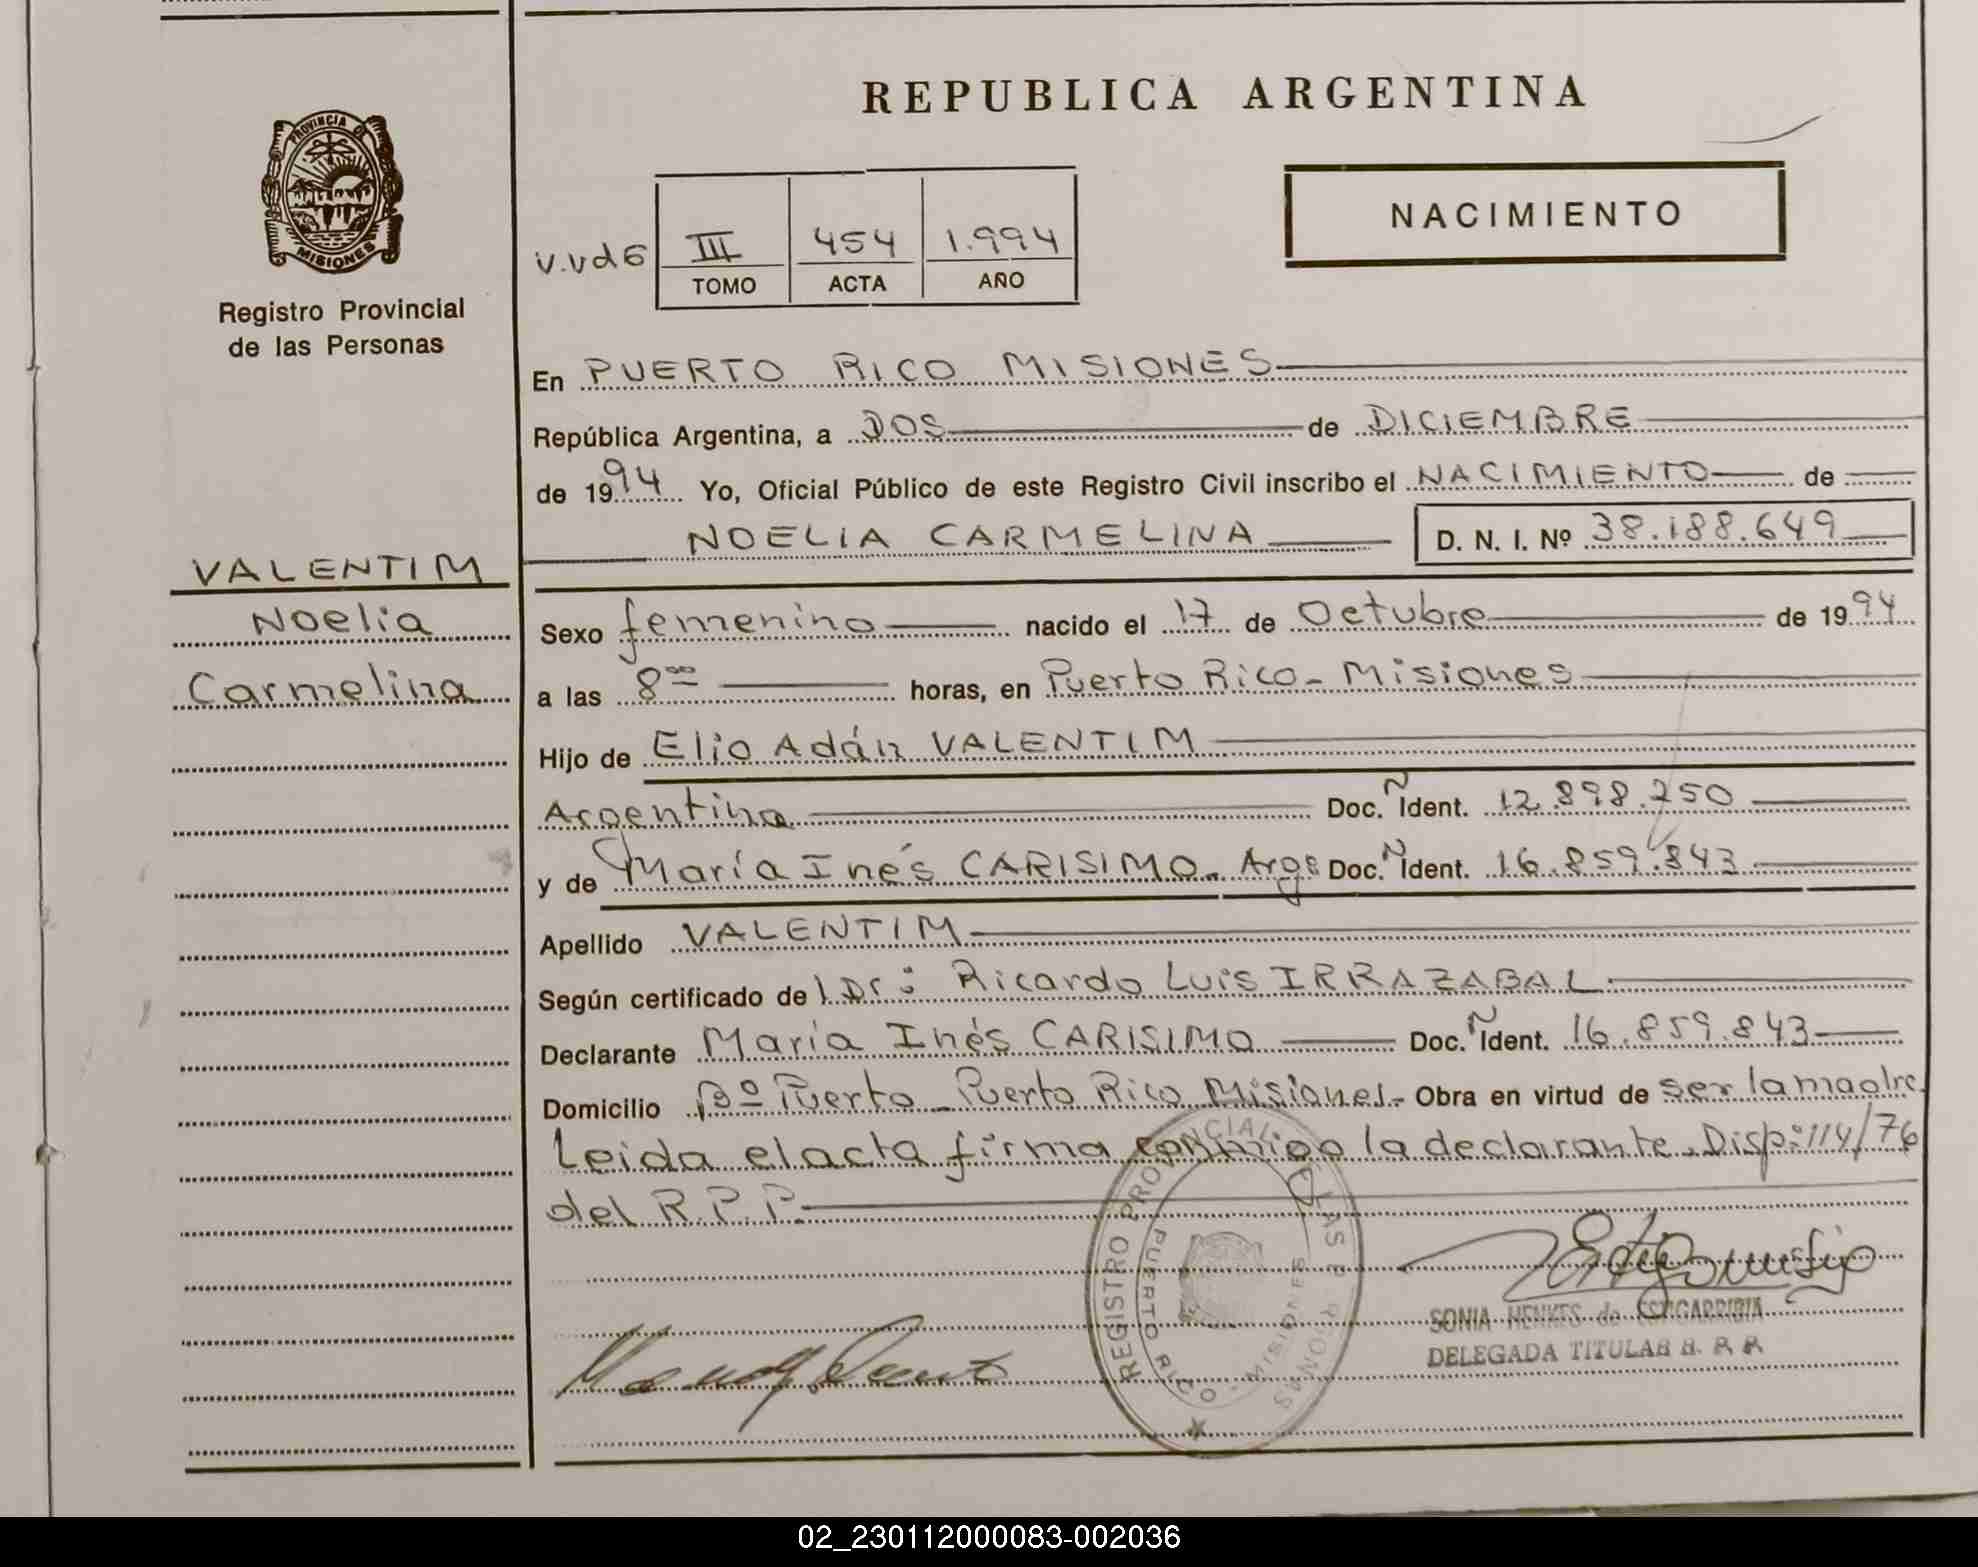 REPUBLICA ARGENTINA
PROVINCIA DE
MISIONES
Registro Provincial
de las Personas
NACIMIENTO
III 454 1.994
TOMO ACTA AÑO
En PUERTO RICO MISIONES
República Argentina, a DOS de DICIEMBRE
de 1994 Yo, Oficial Público de este Registro Civil inscribo el NACIMIENTO de
NOELIA CARMELINA D. N. I. Nº 38.188.649
VALENTIM
Noelia
Carmelina
Sexo femenino nacido el 17 de Octubre de 1994
a las 8ºº horas, en Puerto Rico - Misiones
Hijo de Elio Adán VALENTIM
Argentina Doc. Ident. 12.898.250
y de María Inés CARISIMO. Arge Doc. Ident. 16.859.843
Apellido VALENTIM
Según certificado de l Dr: Ricardo Luis IRRAZABAL
Declarante María Inés CARISIMO Doc. Ident. 16.859.843
Domicilio Bº Puerto - Puerto Rico Misiones - Obra en virtud de ser la madre.
Leida el acta firma conmigo la declarante. Disp: 114/76
del R.P.P.
REGISTRO PROVINCIAL DE LAS PERSONAS
PUERTO RICO - MISIONES
SONIA HENKES de ESTIGARRIBIA
DELEGADA TITULAR R. P. P.
02_230112000083-002036